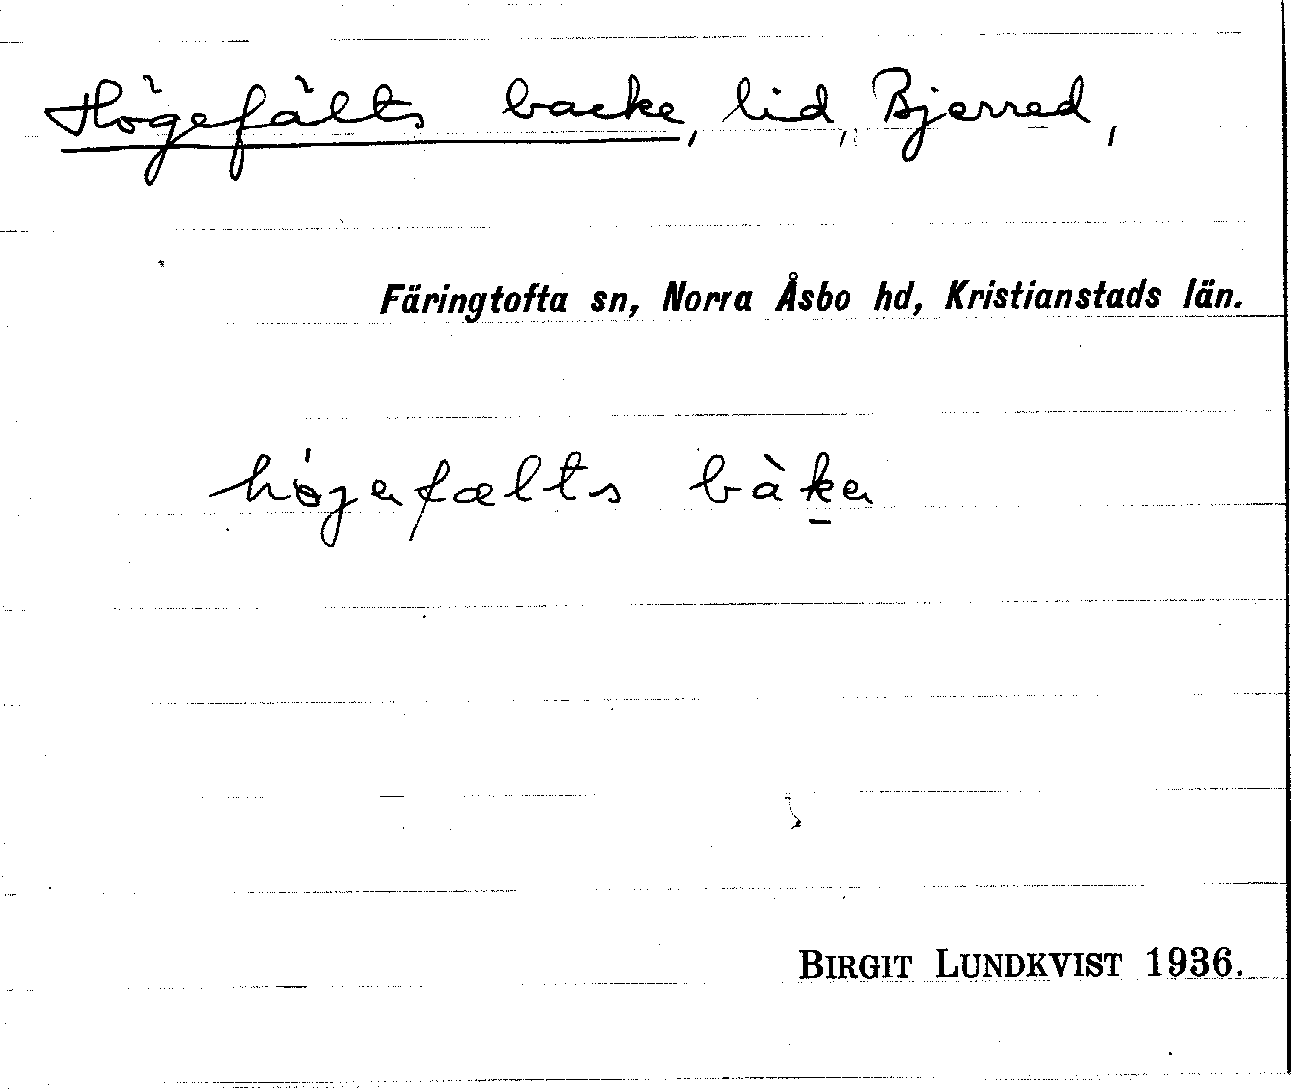 Högefälts backe, lid, Bjerred,
Färingtofta sn, Norra Åsbo hd, Kristianstads län.
högefælts bàke
BIRGIT LUNDKVIST 1936.